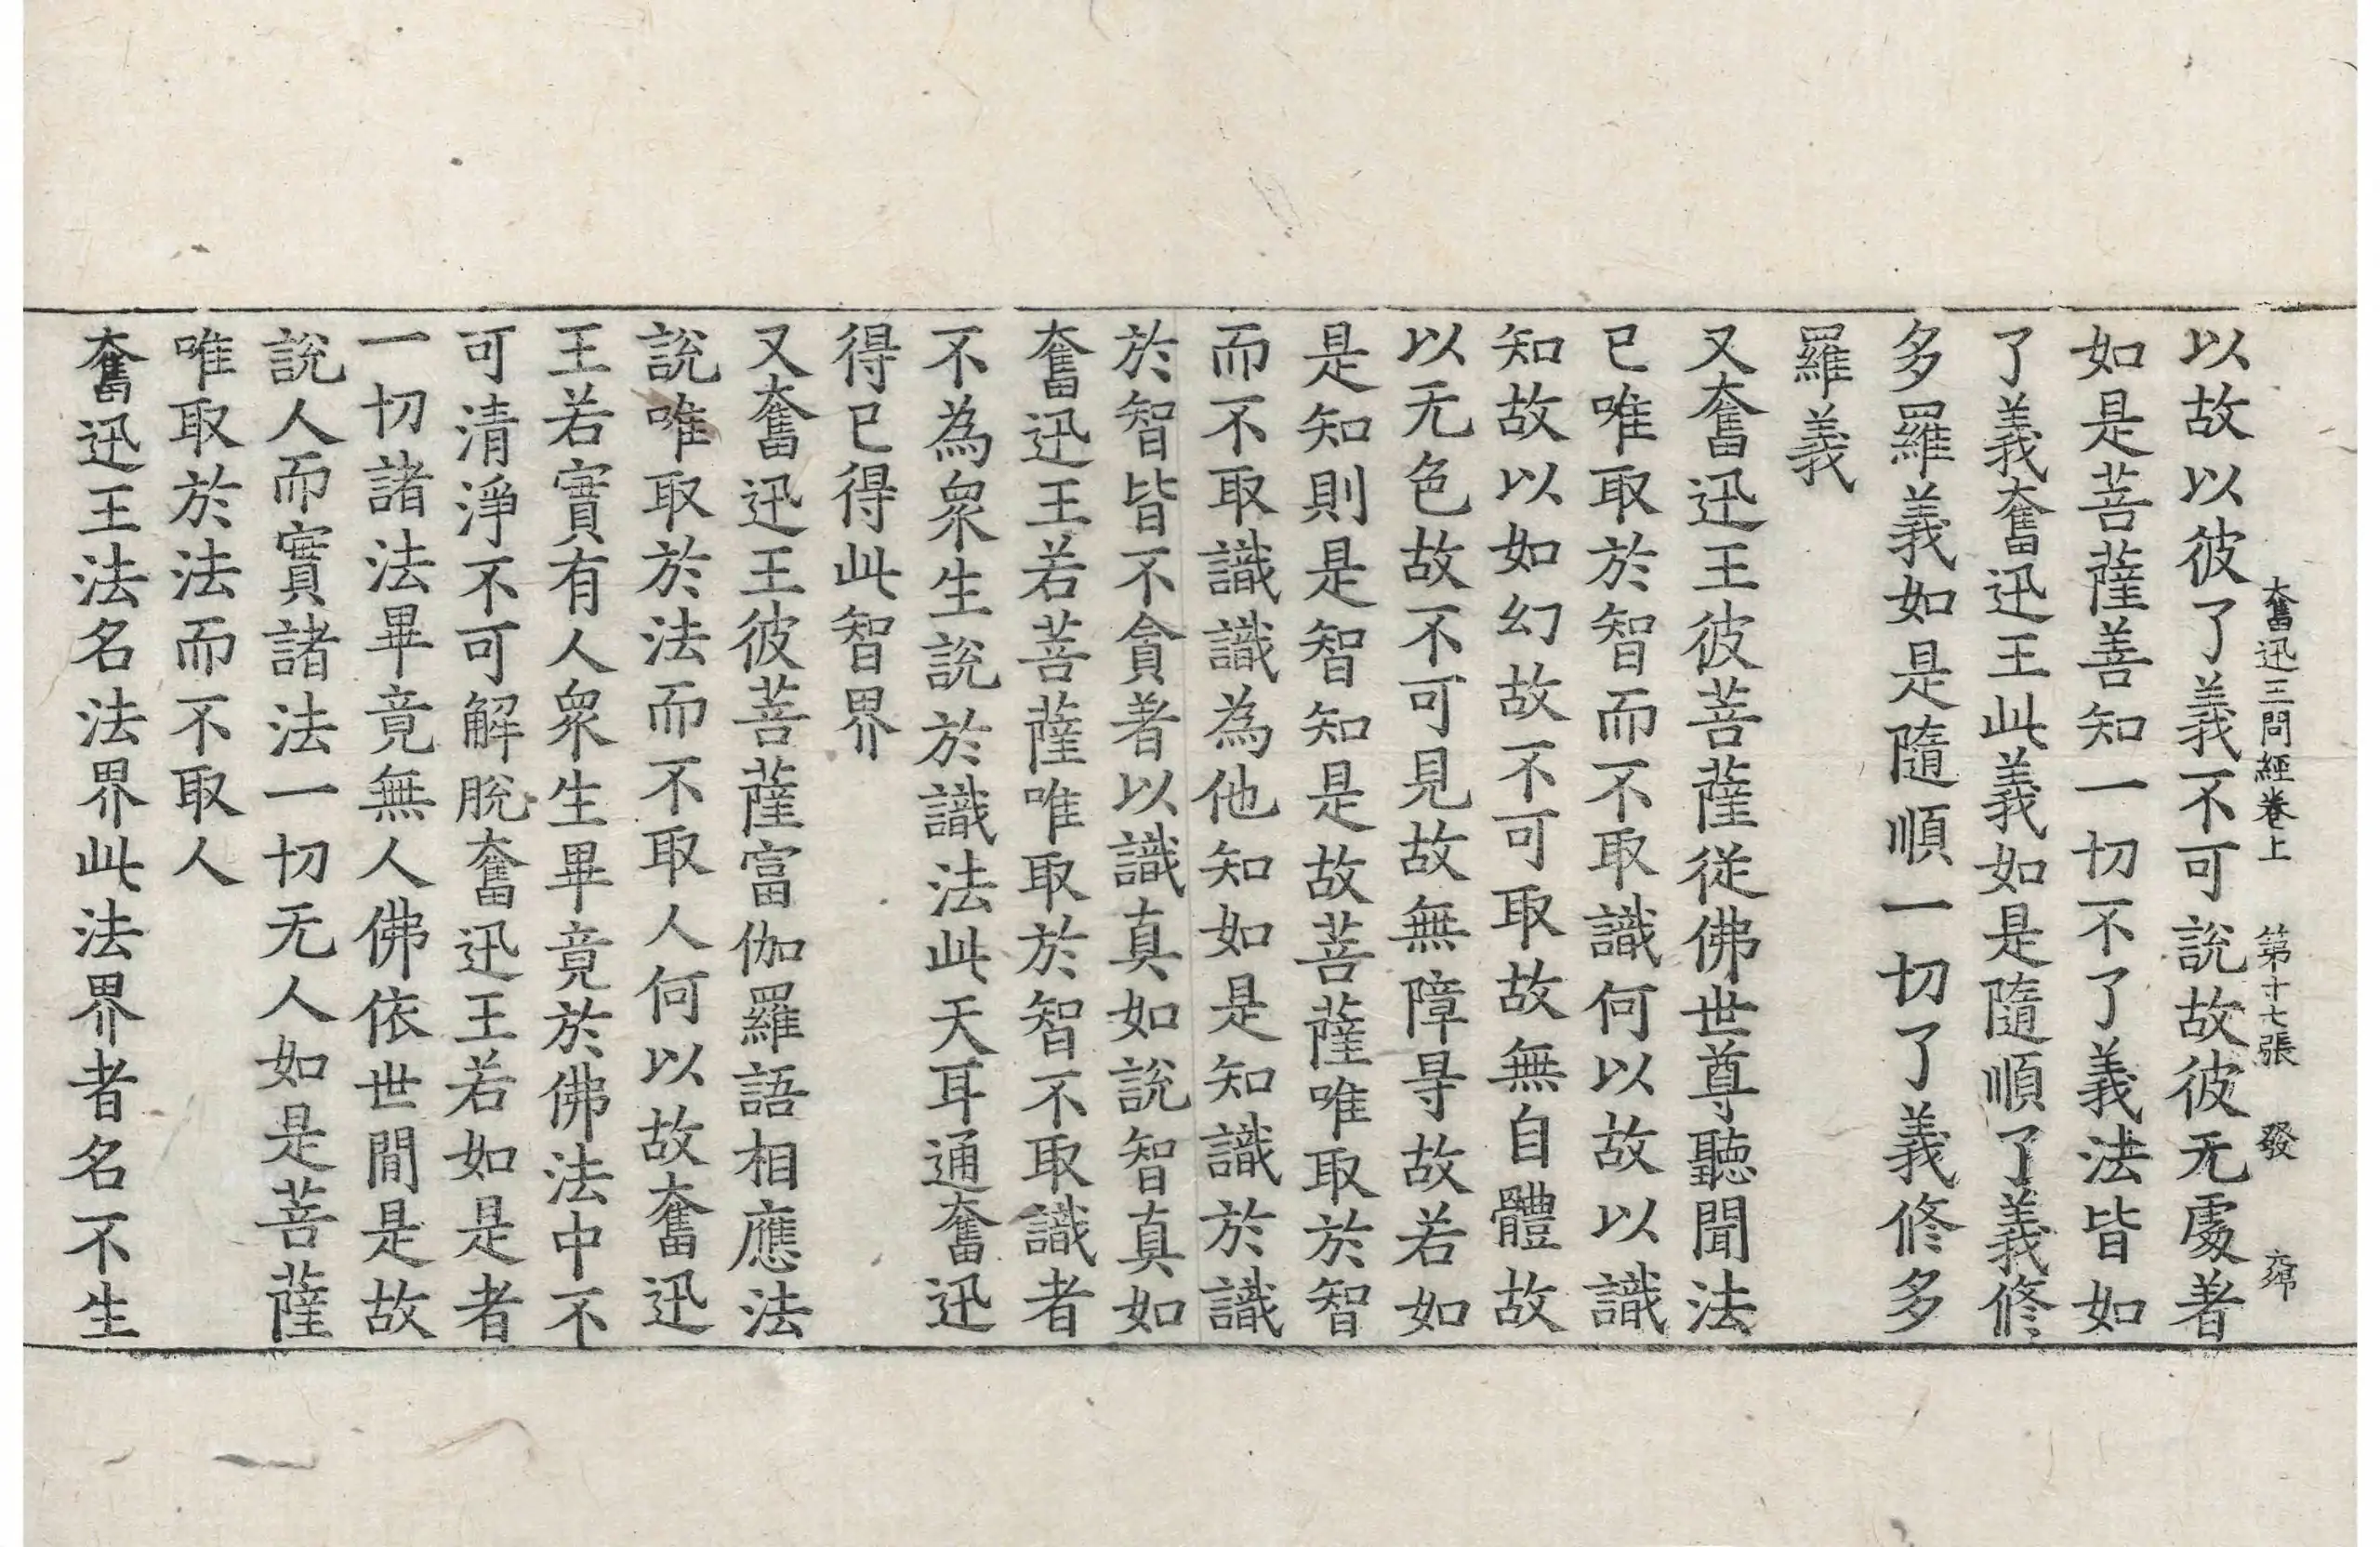 奮迅王問經卷上　第十七張　發
以故以彼了義不可說故彼无處著
如是菩薩善知一切不了義法皆如
了義奮迅王此義如是隨順了義修
多羅義如是隨順一切了義修多
羅義
又奮迅王彼菩薩從佛世尊聽聞法
已唯取於智而不取識何以故以識
知故以如幻故不可取故無自體故
以无色故不可見故無障㝵故若如
是知則是智知是故菩薩唯取於智
而不取識識為他知如是知識於識
於智皆不貪著以識真如說智真如
奮迅王若菩薩唯取於智不取識者
不為衆生說於識法此天耳通奮迅
得已得此智界
又奮迅王彼菩薩富伽羅語相應法
說唯取於法而不取人何以故奮迅
王若實有人衆生畢竟於佛法中不
可清淨不可解脫奮迅王若如是者
一切諸法畢竟無人佛依世間是故
說人而實諸法一切无人如是菩薩
唯取於法而不取人
奮迅王法名法界此法界者名不生